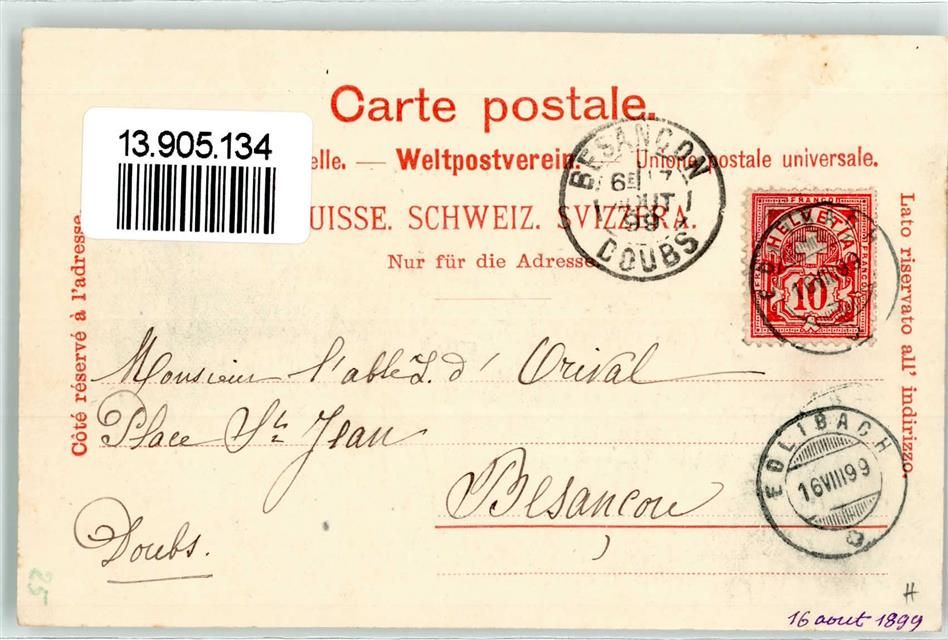 Carte postale.
13.905.134
elle. — Weltpostverein. — Unione postale universale.
UISSE. SCHWEIZ. SVIZZERA.
Nur für die Adresse.
Côté réservé à l'adresse.
Lato riservato all' indirizzo.
BESANCON
6E
AOUT
99
DOUBS
FRANCO
HELVETIA
10
EDLIBACH
16 VIII 99
Monsieur l'abbé L. d' Orival
Place St Jean
Besançon
Doubs.
25
#
16 aout 1899